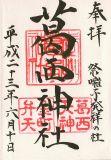 奉拝
祭囃子発祥の社
葛西神社
平成二十三年六月十日
葛西
弁天